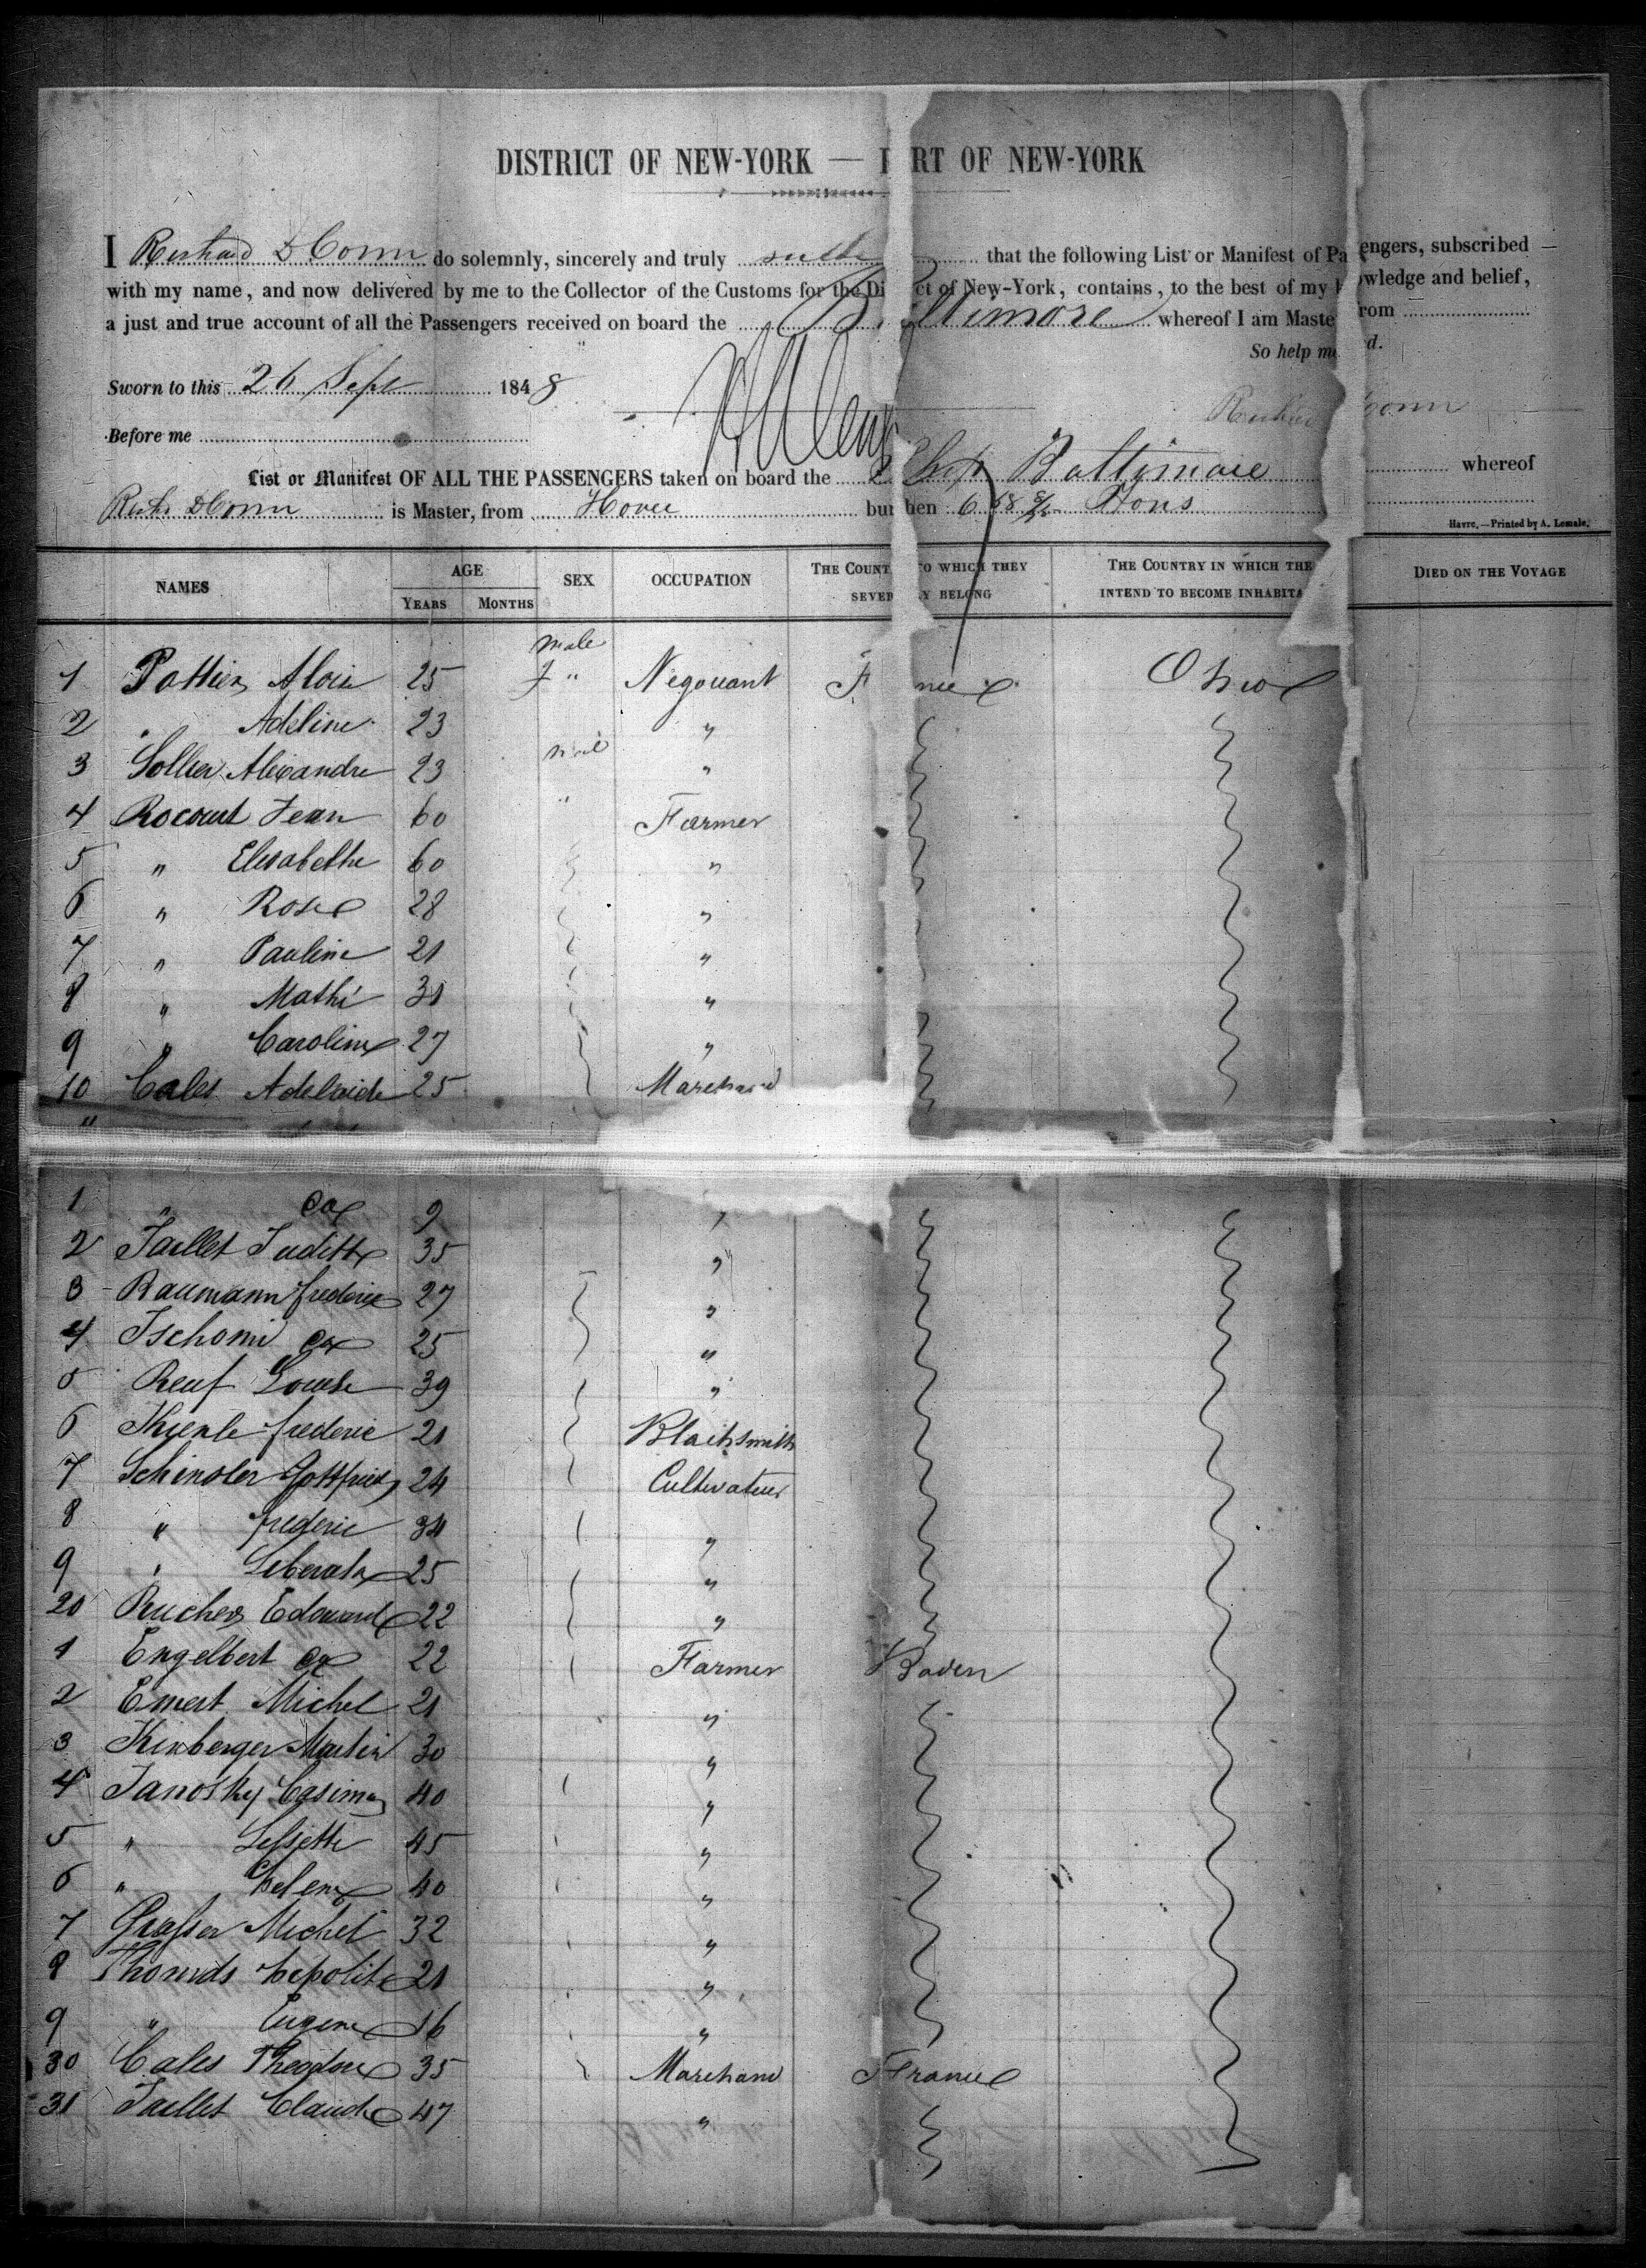 DISTRICT OF NEW-YORK — P RT OF NEW-YORK
I Richard D Conn do solemnly, sincerely and truly that the following List or Manifest of Pa engers, subscribed
with my name, and now delivered by me to the Collector of the Customs for the Di ct of New-York, contains, to the best of my k owledge and belief,
a just and true account of all the Passengers received on board the B ltimore whereof I am Maste rom
So help me d.
Sworn to this 26 Sept 1848
Before me
List or Manifest OF ALL THE PASSENGERS taken on board the Ship Baltimore whereof
Rich D Conn is Master, from Havre burthen 668 Tons
Havre.—Printed by A. Lemale.
NAMES AGE SEX OCCUPATION THE COUNT TO WHICH THEY THE COUNTRY IN WHICH THE DIED ON THE VOYAGE
YEARS MONTHS SEVER Y BELONG INTEND TO BECOME INHABITA
male
1 Pottier Alois 25 f " Negociant F nce Ohio
2 " Adeline 23 "
male
3 Sollier Alexandre 23 "
4 Rocourt Jean 60 " Farmer
5 " Elisabethe 60 "
6 " Rose 28 "
7 " Pauline 21 "
8 " Mathi 31 "
9 " Caroline 27 "
10 Cales Adelaide 25 Marchand
"
1 " 9 "
2 Taillet Judith 35 "
3 Baumann frederic 27 "
4 Tschomi 25 "
5 Reuf Louise 39 "
6 frederic 21 Blacksmith
7 Schindler Gottfried 24 Cultivateur
8 " frederic 34 "
9 " Liberata 25 "
20 Edouard 22 "
1 Engelbert 22 Farmer Baden
2 Emert Michel 21 "
3 Kinberger Martin 30 "
4 Janosky Casimir 40 "
5 " 45 "
6 " helene 40 "
7 Michel 32 "
8 Thomas hipolite 21 "
9 " Eugene 16 "
30 Cales Theodore 35 Marchand France
31 Taillet Claude 47 "